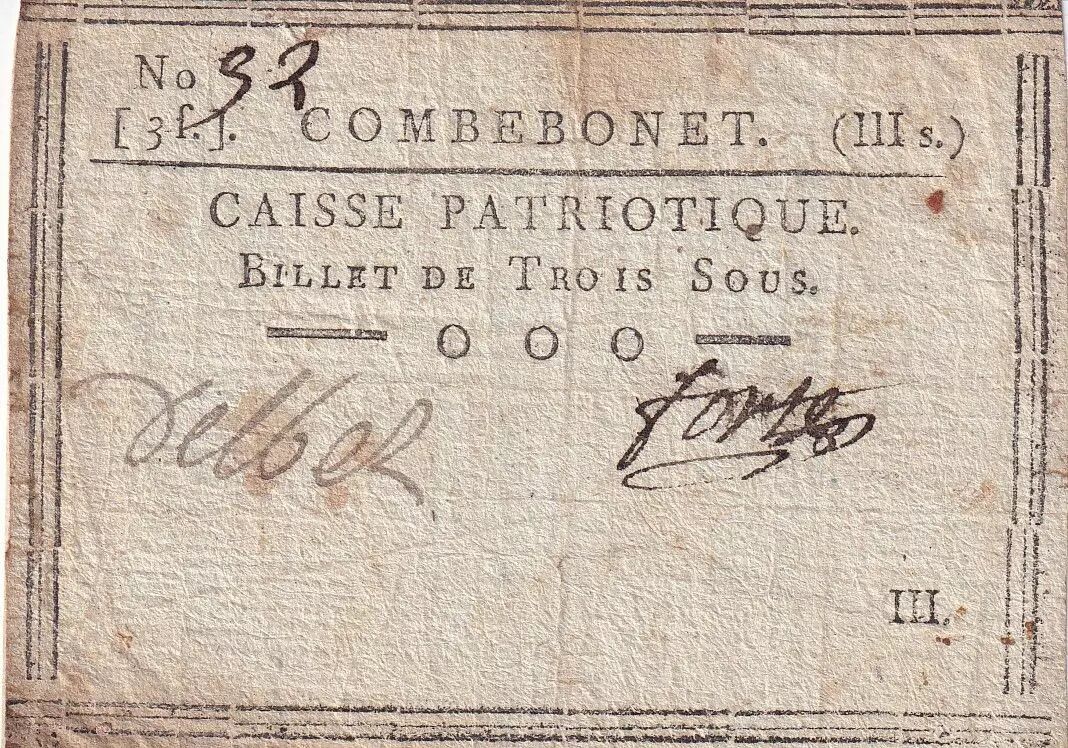 No 92
[3ſ.]. COMBEBONET. (IIIs.)
CAISSE PATRIOTIQUE.
BILLET DE TROIS SOUS.
O O O
Delbel
III.